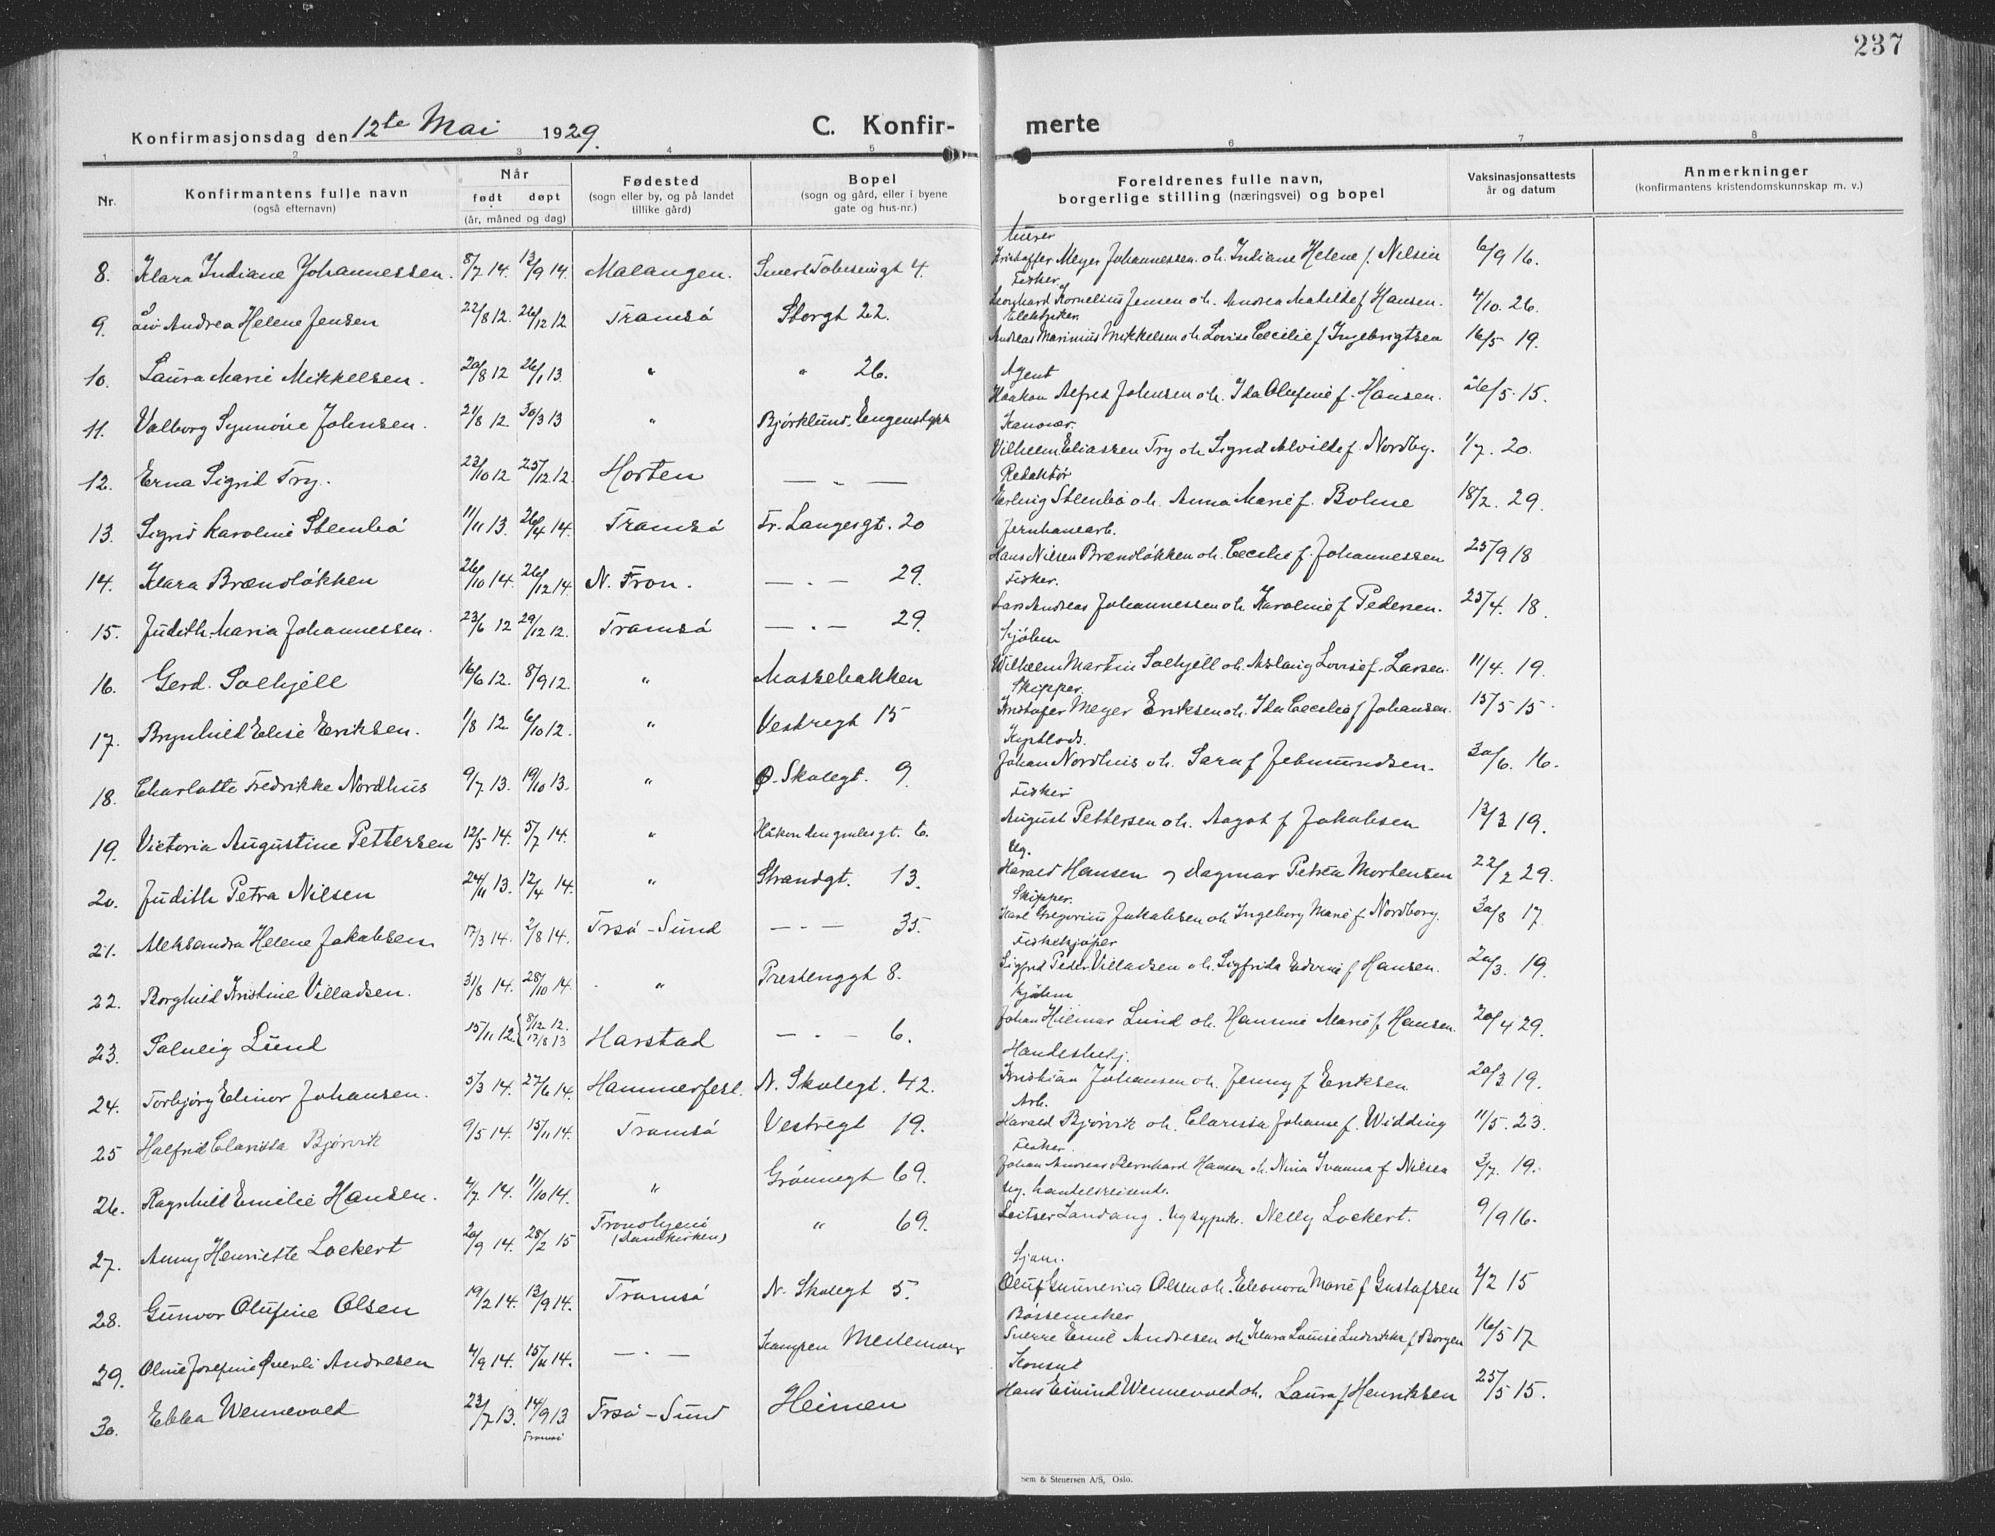 237
Konfirmasjonsdag den 12te Mai 1929.
C. Konfir-
merte
1 2 3 4 5 6 7 8
Nr.
Konfirmantens fulle navn
(også efternavn)
Når
født døpt
(år, måned og dag)
Fødested
(sogn eller by, og på landet
tillike gård)
Bopel
(sogn og gård, eller i byene
gate og hus-nr.)
Foreldrenes fulle navn,
borgerlige stilling (næringsvei) og bopel
Vaksinasjonsattests
år og datum
Anmerkninger
(konfirmantens kristendomskunnskap m. v.)
8. Klara Indiane Johannessen. 8/7 14. 13/9 14. Malangen. 4. Murer Kristoffer Meyer Johannessen o.h. Indiane Helene f. Nilsen 6/9 16.
9. Liv Andrea Helene Jensen 22/8 12. 26/12 12 Tromsö Storgt 22. Fisker Kornelius Jensen o.h. Andrea Matilde f Hansen. 4/10. 26.
10. Laura Marie Mikkelsen. 20/8 12 26/1 13. " " 26. Elektriker. Andreas Marinius Mikkelsen o.h. Lovise Cecilie f Ingebrigtsen 16/5 19.
11. Valborg Synnöve Johnsen. 21/8 12 30/3 13 " Björklund. Agent Haakon Alfred Johnsen o.h. Ida Olufine f. Hansen. 26/5. 15.
12. Erna Sigrid Try. 23/10 12 25/12 12. Horten — " — Vilhelm Eliassen Try o.h. Sigrid Alvilde f. Nordby. 1/7. 20.
13. Sigrid Karoline Stenbö 11/11 13. 26/4 14. Tromsö Fr. Langesgt. 20 Redaktör Erling Stenbö o.h. Anna Marie f. Bolme 18/2. 29.
14. Klara Brændløkken 26/10 14. 26/12 14. N. Fron. — " — 29. Jernbanearb. Hans Nilsen Brændlökken o.h. Cecilie f. Johannessen 25/9 18
15. Judith Maria Johannessen. 23/6 12 29/12 12. Tromsö — " — 29. Fisker. Lars Andreas Johannessen o.h. Karoline f Pedersen. 25/4. 18.
16. Gerd. Solhjell 16/6 12. 8/9 12. " Mossebakken Sjöm Wilhelm Martin Solhjell o.h. Aslaug Lovise f. Larsen. 11/4. 19.
17. Brynhild Elise Eriksen. 1/8 12 6/10 12. " Vestregt 15 Skipper. Kristofer Meyer Eriksen o.h. Ida Cecilie f Johansen. 15/5 15.
18. Charlotte Fredrikke Nordhus 9/7 13. 19/10 13. " Ø. Skolegt. 9. Kystlods. Johan Nordhus o.h. Sara f Jebmundsen. 30/6. 16.
19. Victoria Augustine Pettersen 12/5 14. 5/7 14. " Håkon den gamlesgt. 6. Fisker August Pettersen o.h. Aagot f Jakobsen 13/3 19.
20. Judith Petra Nilsen 24/11 13. 12/4 14. " Strandgt. 13. Ug. Harald Hansen og Dagmar Petrea Mortensen 22/2 29.
21. Aleksandra Helene Jakobsen 17/3 14. 2/8 14. Trsö-Sund — " — 35. Skipper. Karl Gregorius Jakobsen o.h. Ingeborg Marie f. Nordborg. 30/8 17.
22. Borghild Kristine Villadsen. 31/8 14. 28/10 14. " Prestenggt 8. Fiskekjöper Sigfred Peder Villadsen o.h. Sigfrida f Hansen. 20/3. 19.
23. Solveig Lund 15/11 12. 8/12 12. Harstad — " — 6. Sjöm Johan Hilmar Lund o.h. Hannine Marie f. Hansen. 20/4 29.
24. Torbjörg Elinor Johansen. 5/3 14. 27/6 14. Hammerfest. N. Skolegt. 42. Handelsbetj. Kristian Johansen o.h. Jenny f Eriksen 20/3 19.
25 Halfrid Clarissa Bjørvik 9/5 14. 15/11 14. Tromsö Vestregt 19. Arb. Harald Bjørvik o.h. Clarissa Johanne f. Widding 11/5. 23.
26. Ragnhild Emilie Hansen. 4/7 14. 11/10 14. " Grönnegt 69. Fisker. Johan Andreas Bernhard Hansen o.h. Nina Ivanna f Nilsen 3/7. 19.
27. Anny Henriette Lockert 20/9 14. 28/2 15 Trondhjem (Domkirken) " 69. Ug. handelsreisende. Nelly Lockert. 9/9 16.
28. Gunvor Olufine Olsen 19/2 14. 13/9 14. Tromsö N. Skolegt 5. Sjöm. Oluf Olsen o.h. Eleonora Marie f Gustafsen 2/2 15
29. Oline Josefine Andresen 4/9 14. 15/11 14. — " — Börsemaker Sverre Emil Andresen o.h. Klara Louise Ludvikke f Borgen 16/5 17
30. Ebba Wennevold 23/7 13. 14/9 13 Tromsö Trsö-Sund Heimen Konsul Hans Eivind Wennevold o.h. Laura f Henriksen 25/5 15.
Sem & Stenersen A/S, Oslo.